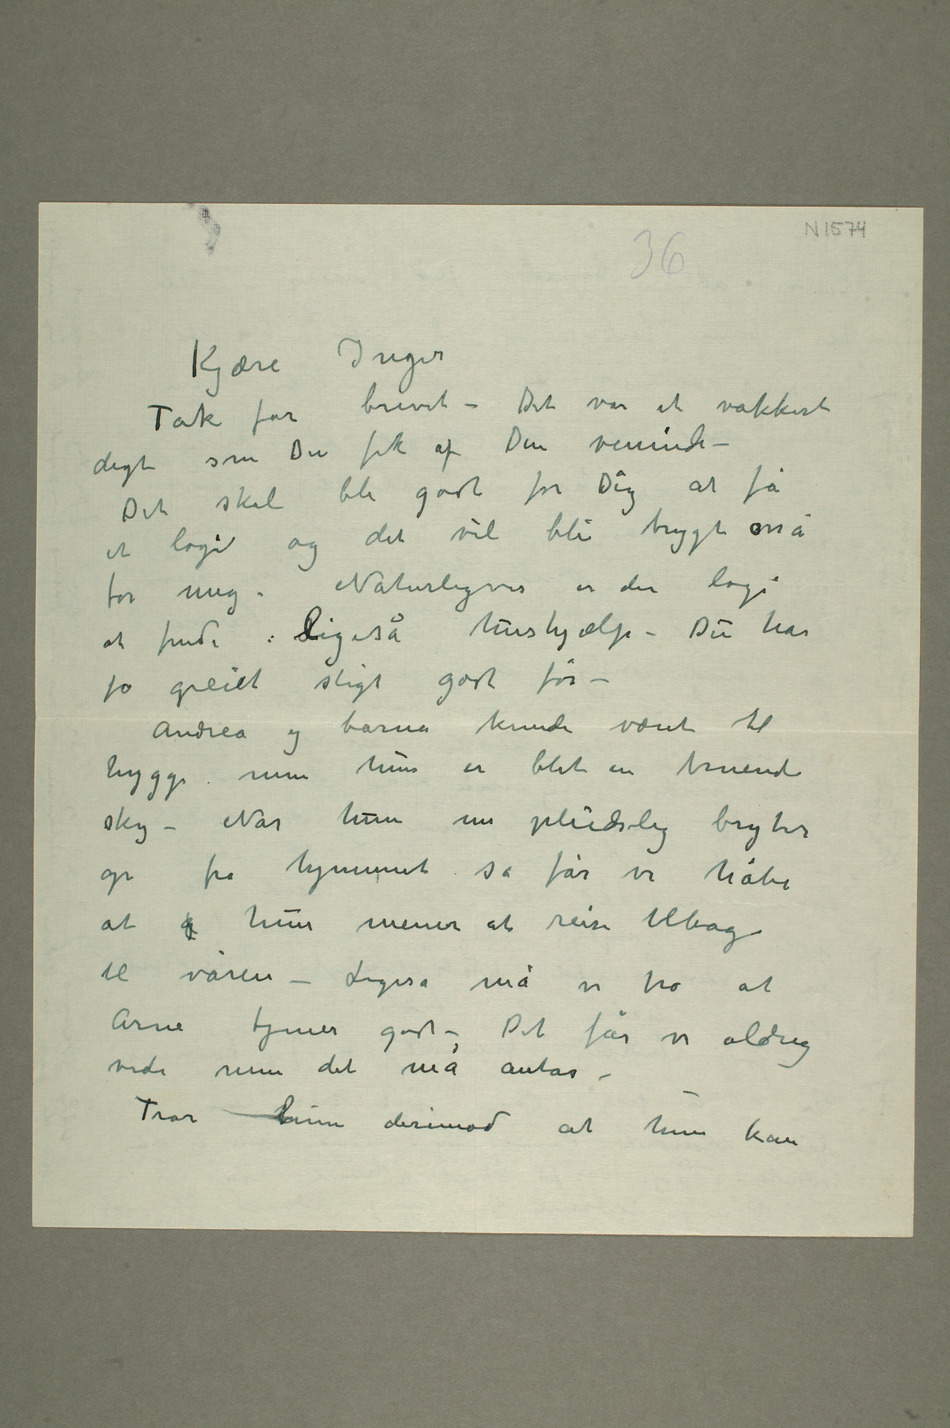 N 1574
36
Kjære Inger
Tak for brevet – Det var et vakkert
digt som Du fik af Din veninde –
Det skal bli godt for Dig at få
et logi og det vil bli trygt også
for mig. Naturligvis er der logi
at finde. Ligeså hushjælp – Du har
jo greiet sligt godt før –
Andrea og barna kunde været til
hygge men hun er blet en truende
sky – Når hun nu pludselig bryter
op fra hjemmet så får vi håbe
at hun mener at reise tilbage
til våren – Ligeså må vi tro at
Arne tjener godt –, Det får vi aldrig
vide men det må antas –
Tror hun derimod at hun kan